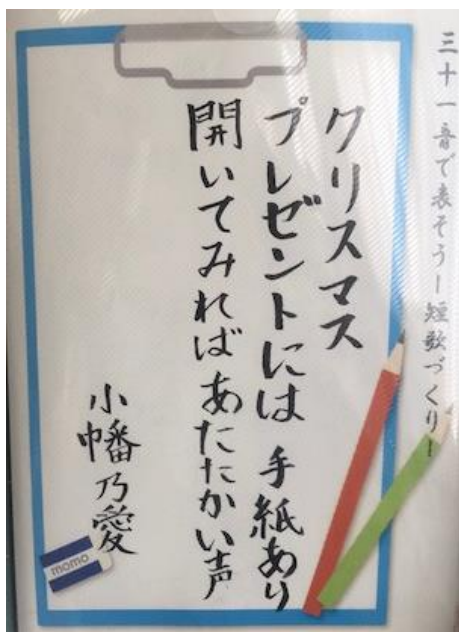 三十一音で表そうー短歌づくりー
クリスマス
プレゼントには 手紙あり
開いてみれば あたたかい声
小幡乃愛
momo